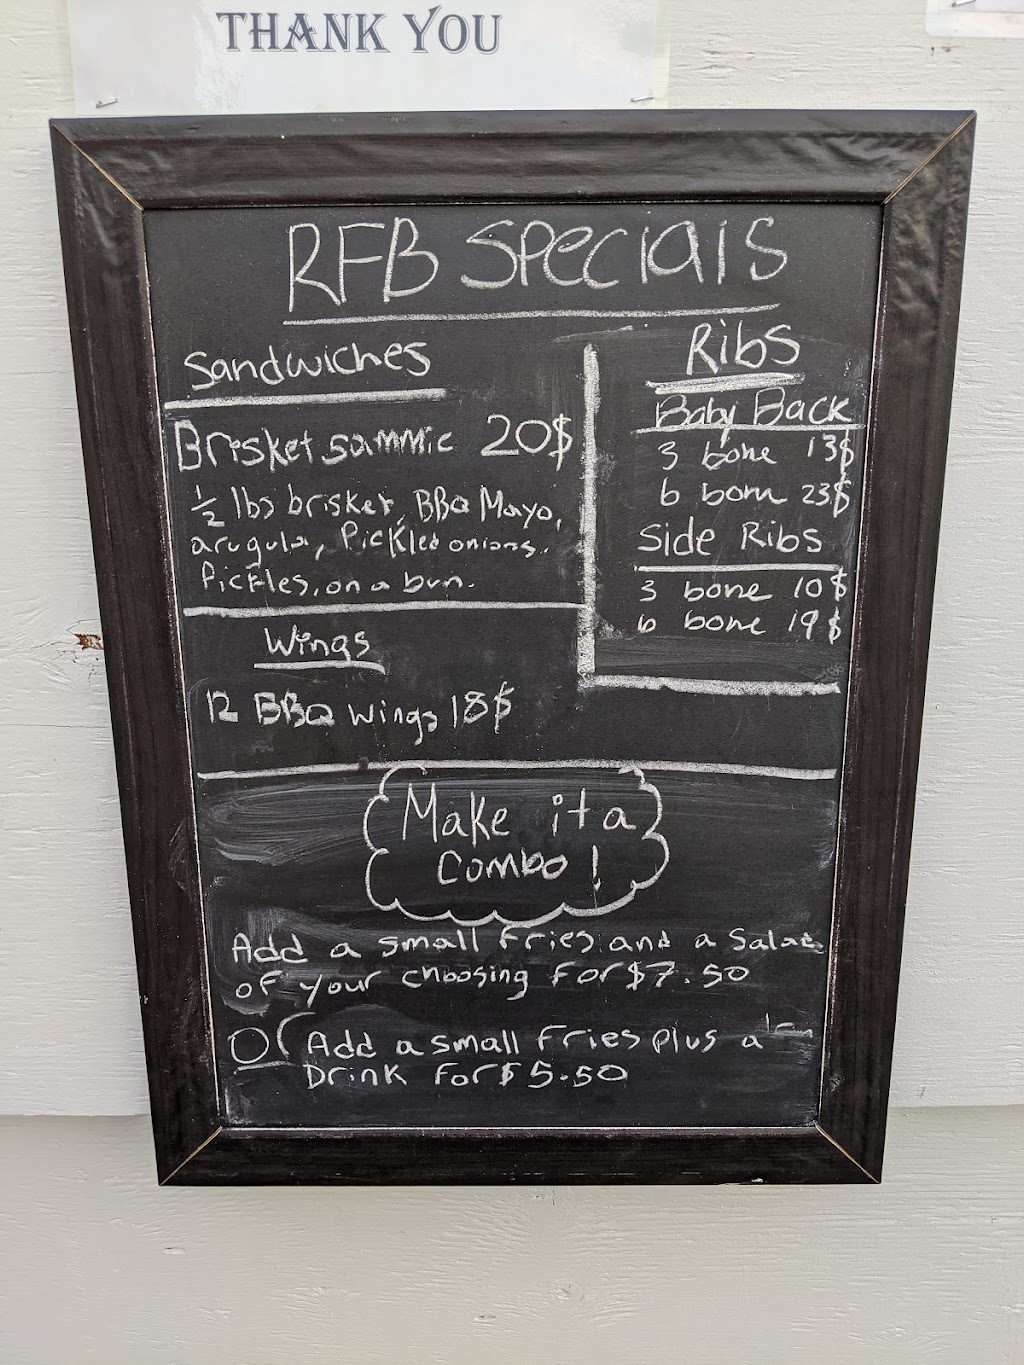 THANK YOU
RFB Specials
Sandwiches
Brisket sammie 20$
½ lbs brisket, BBQ Mayo,
arugula, Pickled onions,
Pickles, on a bun.
Wings
12 BBQ Wings 18$
Ribs
Baby Back
3 bone 13$
6 bone 23$
Side Ribs
3 bone 10$
6 bone 19$
Make it a
Combo!
Add a small Fries and a Salad
of your choosing For $7.50
Or Add a small Fries plus a
Drink For $5.50